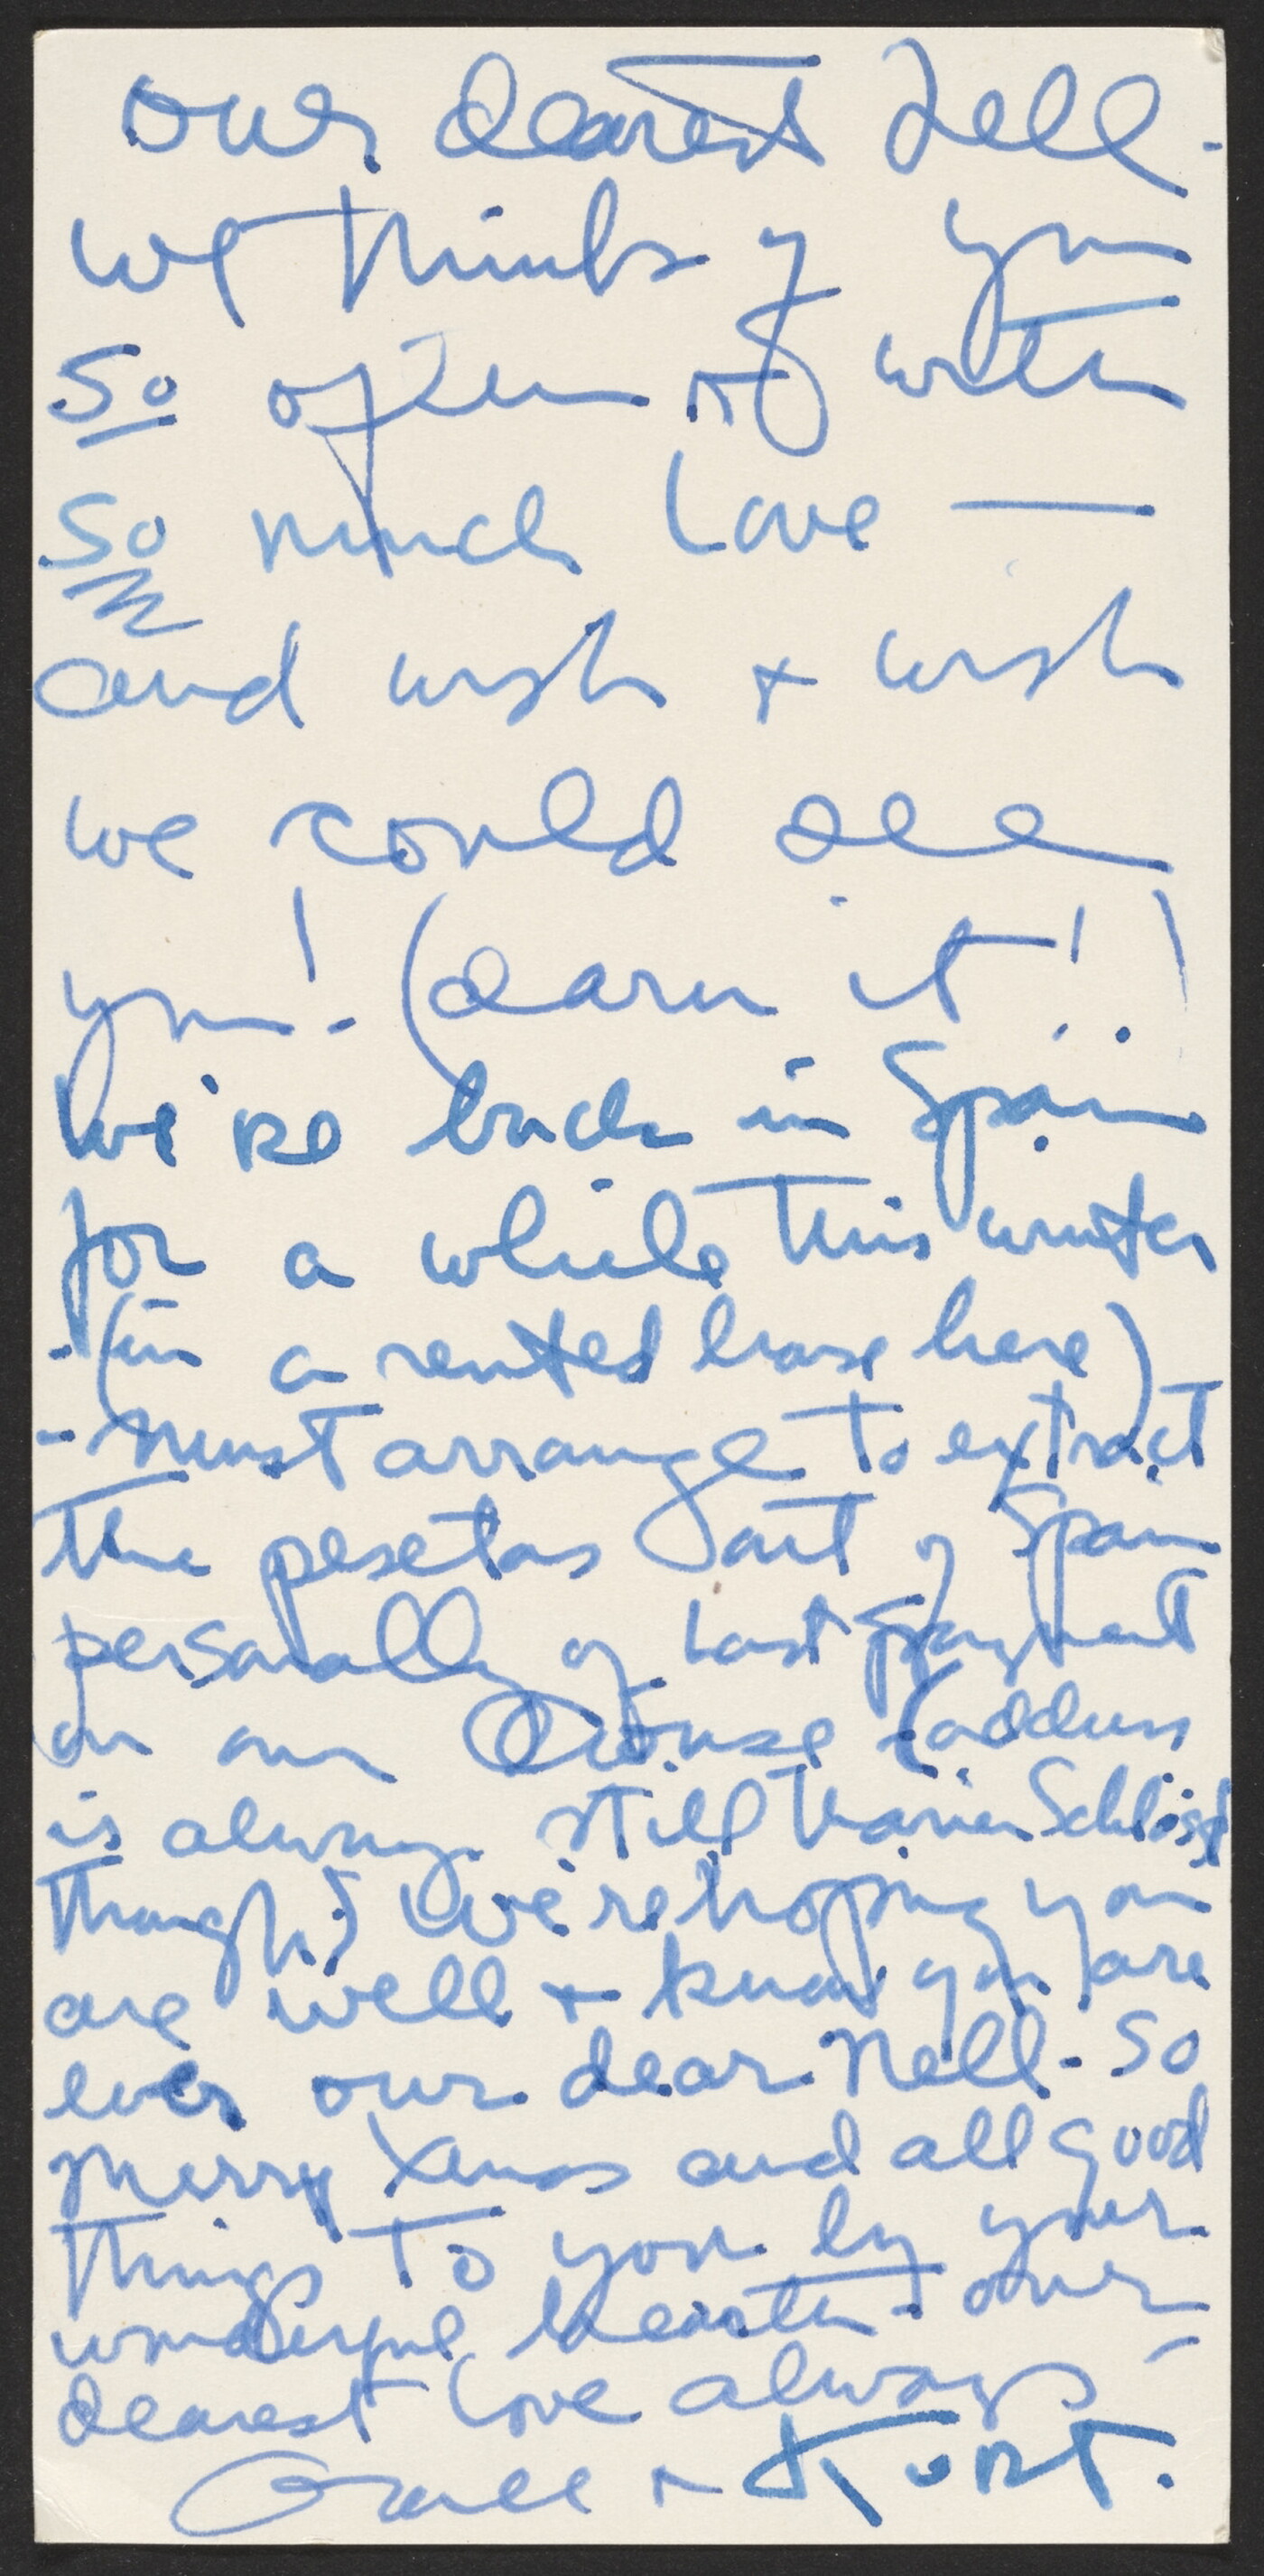 Our dearest Nell -
we think of you
so often & with
so much love —
and wish & wish
we could see
you! - (darn it!!)
We're back in Spain
for a while this winter
- (in a rented house here)
- must arrange to extract
the pesetas out of Spain
personally of last payment
on our house (address
is always still
though) We're hoping you
are well & know you are
ever our dear Nell - so
Merry Xmas and all good
things to you by your
wonderful hearth - our
dearest love always -
& Kurt.